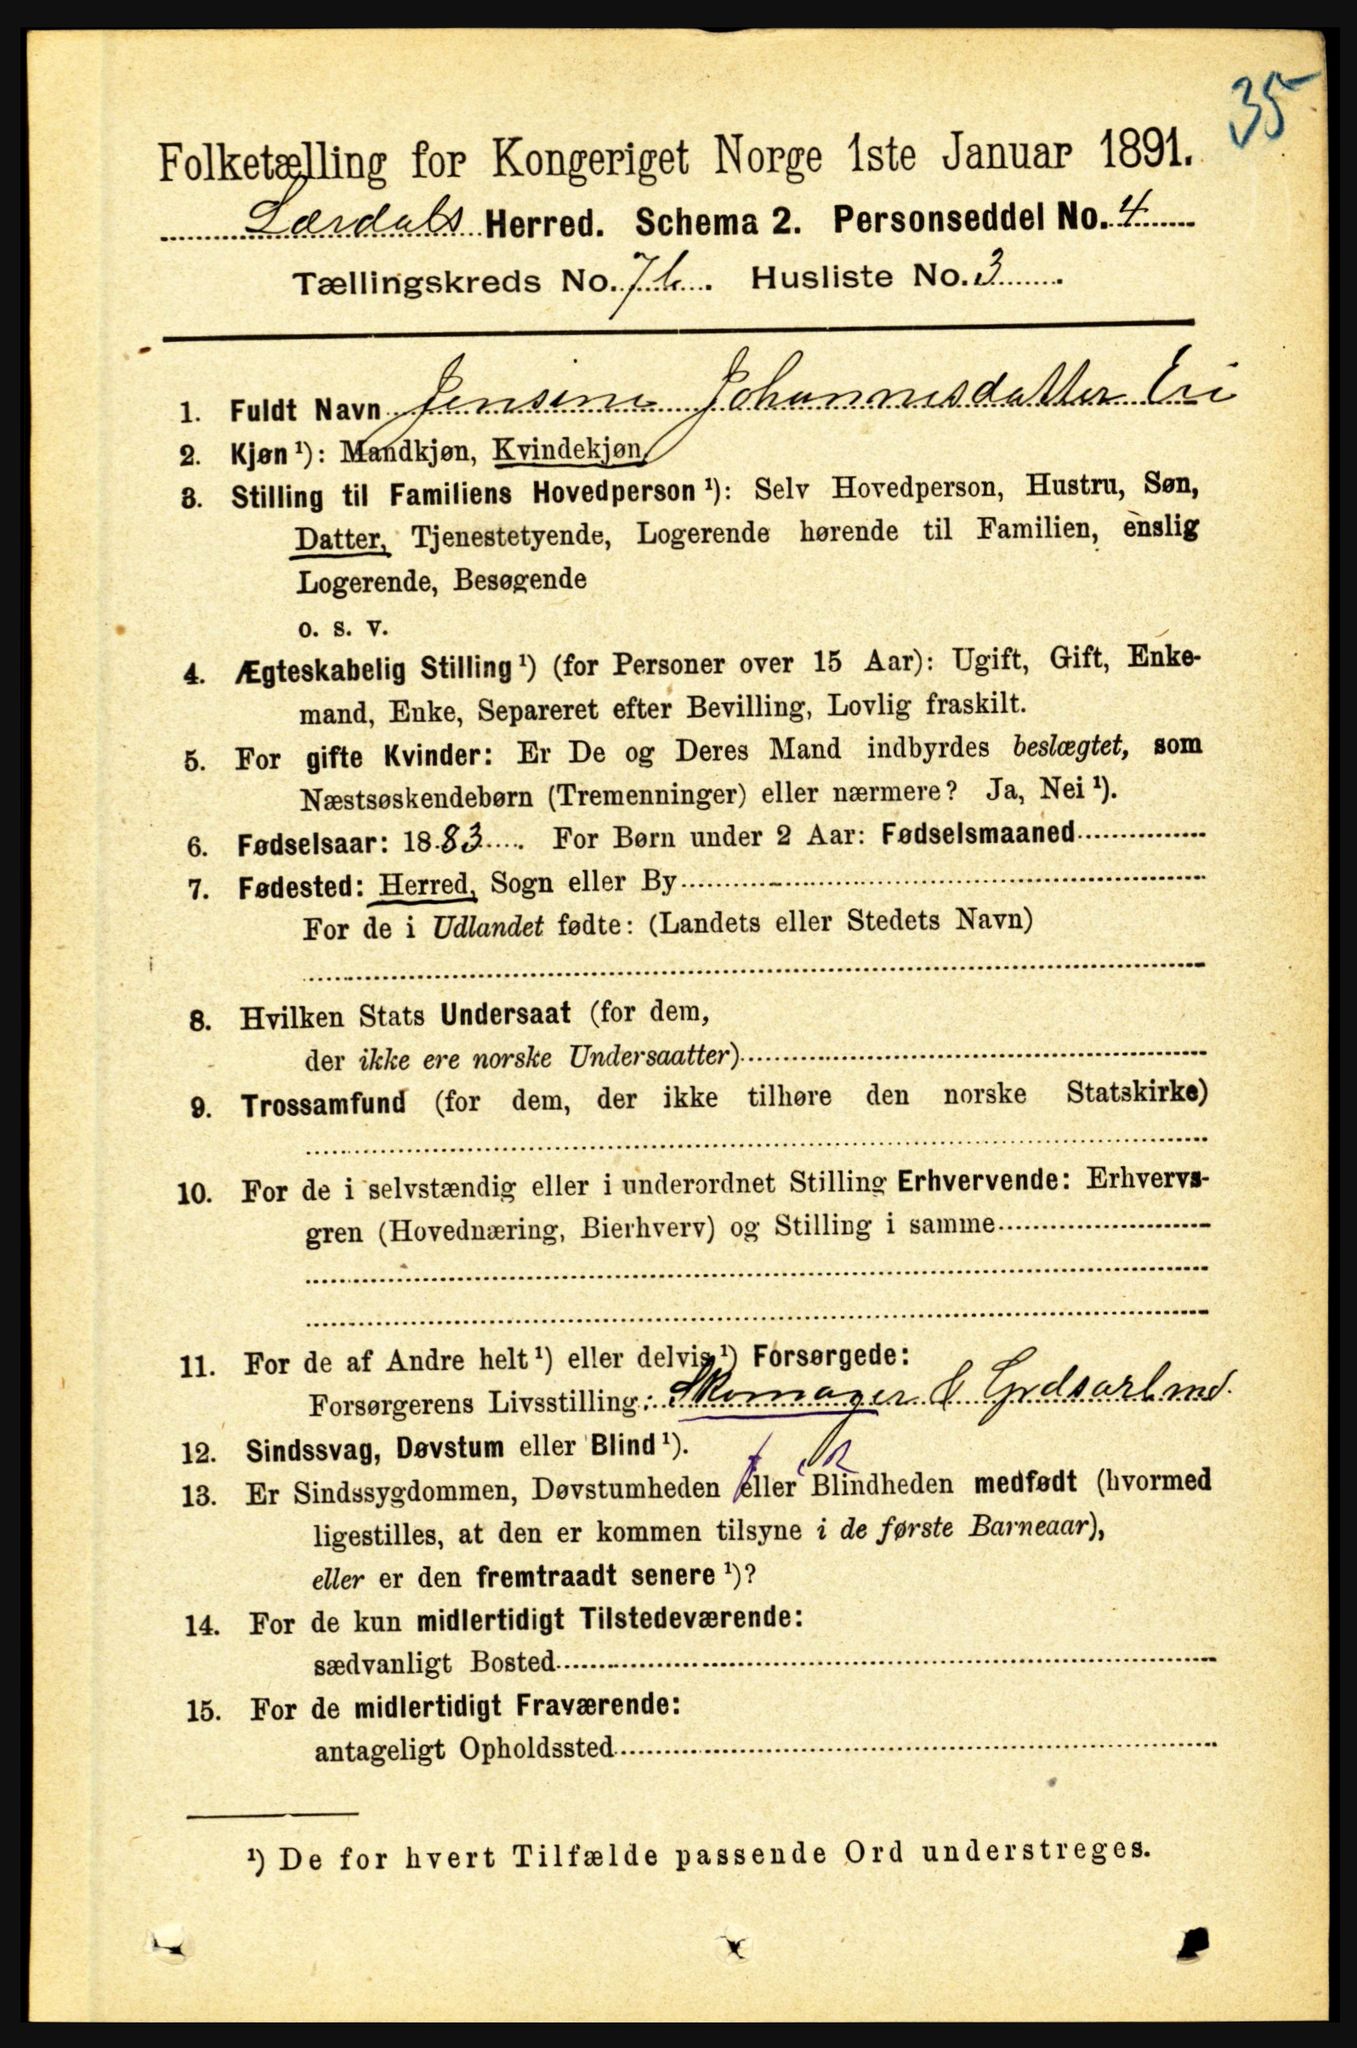 35
Folketælling for Kongeriget Norge 1ste Januar 1891.
Lærdals Herred. Schema 2. Personseddel No. 4
Tællingskreds No. 7b. Husliste No. 3
1. Fuldt Navn Jensine Johannesdatter Eri
2. Kjøn ¹): Mandkjøn, Kvindekjøn
3. Stilling til Familiens Hovedperson ¹): Selv Hovedperson, Hustru, Søn,
Datter, Tjenestetyende, Logerende hørende til Familien, enslig
Logerende, Besøgende
o. s. v.
4. Ægteskabelig Stilling ¹) (for Personer over 15 Aar): Ugift, Gift, Enke-
mand, Enke, Separeret efter Bevilling, Lovlig fraskilt.
5. For gifte Kvinder: Er De og Deres Mand indbyrdes beslægtet, som
Næstsøskendebørn (Tremenninger) eller nærmere? Ja, Nei ¹).
6. Fødselsaar: 1883. For Børn under 2 Aar: Fødselsmaaned
7. Fødested: Herred, Sogn eller By
For de i Udlandet fødte: (Landets eller Stedets Navn)
8. Hvilken Stats Undersaat (for dem,
der ikke ere norske Undersaatter)
9. Trossamfund (for dem, der ikke tilhøre den norske Statskirke)
10. For de i selvstændig eller i underordnet Stilling Erhvervende: Erhvervs-
gren (Hovednæring, Bierhverv) og Stilling i samme
11. For de af Andre helt ¹) eller delvis ¹) Forsørgede:
Forsørgerens Livsstilling: Skomager & Grdsarbmd.
12. Sindssvag, Døvstum eller Blind ¹).
13. Er Sindssygdommen, Døvstumheden eller Blindheden medfødt (hvormed
ligestilles, at den er kommen tilsyne i de første Barneaar),
eller er den fremtraadt senere ¹)?
14. For de kun midlertidigt Tilstedeværende:
sædvanligt Bosted
15. For de midlertidigt Fraværende:
antageligt Opholdssted
¹) De for hvert Tilfælde passende Ord understreges.